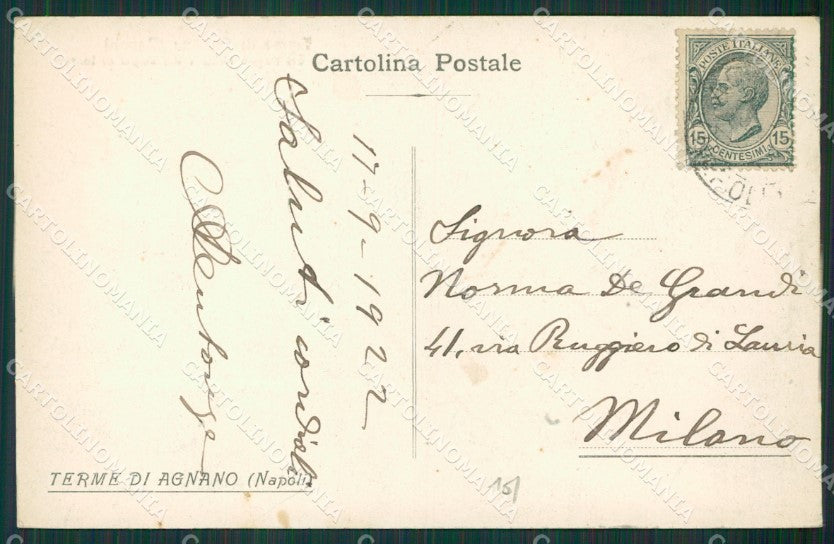 Cartolina Postale
POSTE ITALIANE
15 15
CENTESIMI
17-9-1922
Saluti cordiali
Signora
Norma De Grandi
41, via Ruggiero di Lauria
Milano
TERME DI AGNANO (Napoli)
15/
CARTOLINOMANIA